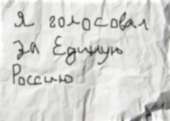 я голосовал
за Единую
Россию